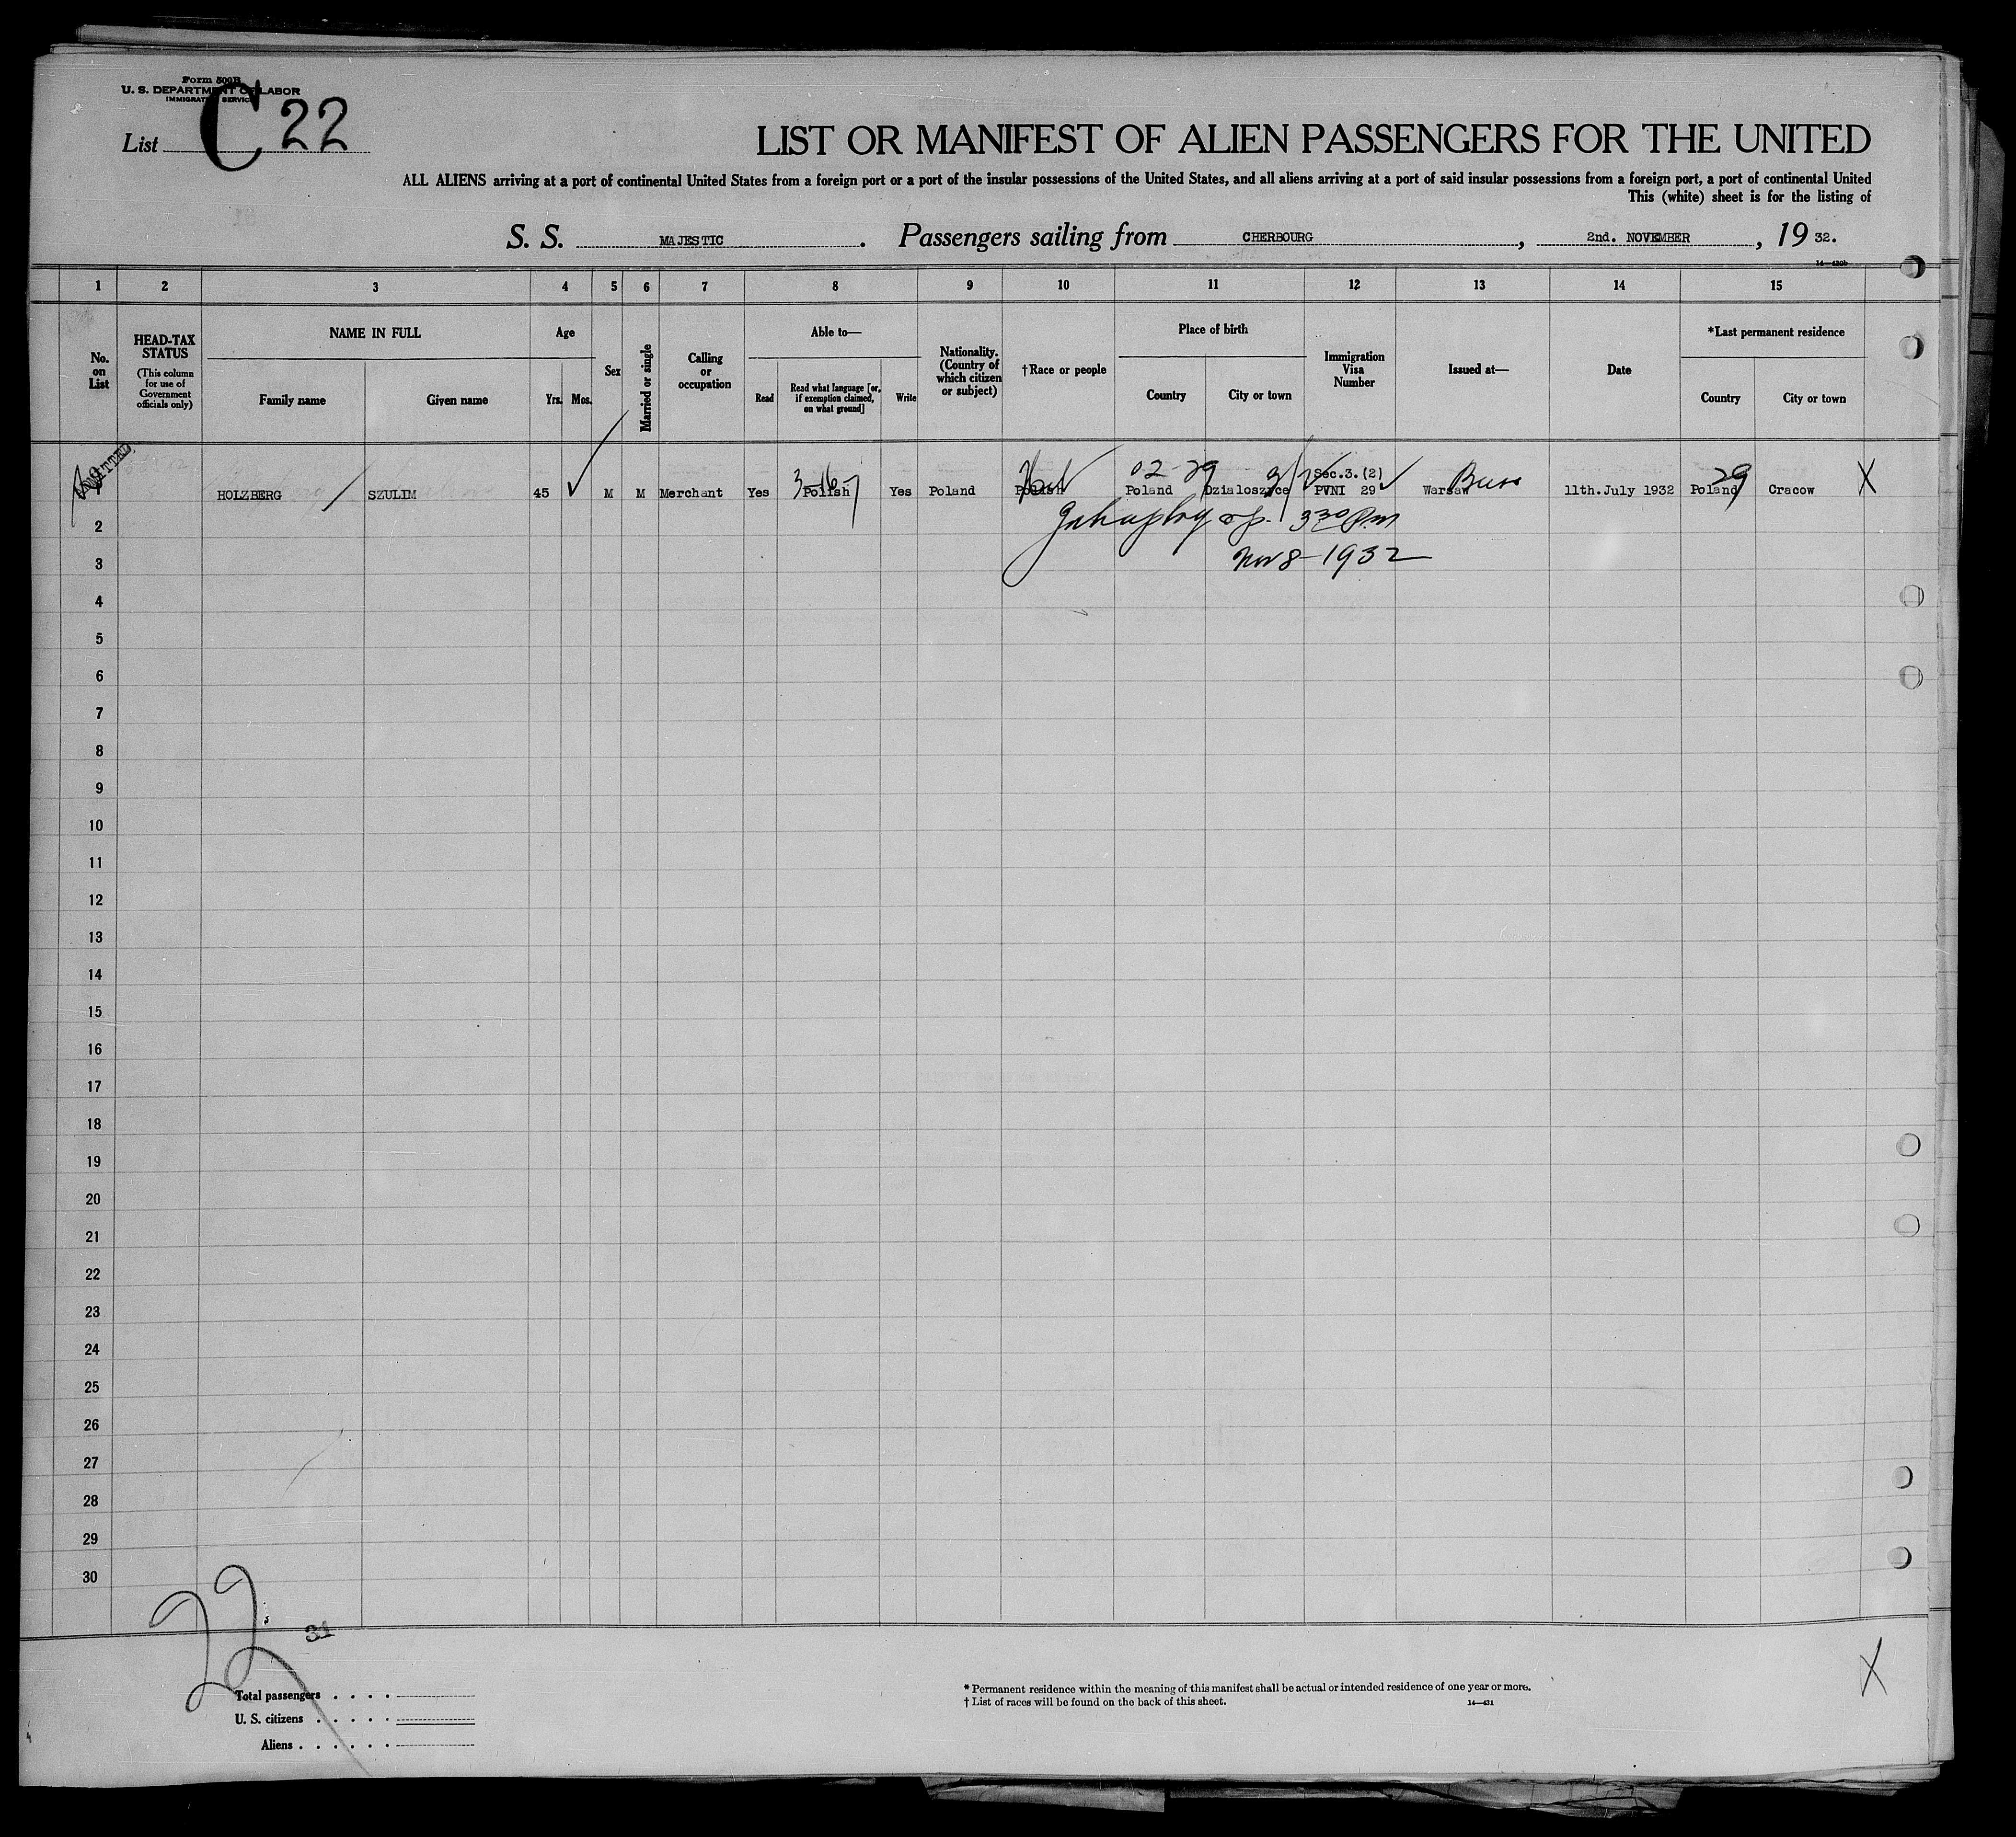 Form 500B
U. S. DEPARTMENT OF LABOR
IMMIGRATION SERVICE
List C 22
LIST OR MANIFEST OF ALIEN PASSENGERS FOR THE UNITED
ALL ALIENS arriving at a port of continental United States from a foreign port or a port of the insular possessions of the United States, and all aliens arriving at a port of said insular possessions from a foreign port, a port of continental United
This (white) sheet is for the listing of
S. S. MAJESTIC. Passengers sailing from CHERBOURG, 2nd. NOVEMBER, 19 32.
14—430b
1 2 3 4 5 6 7 8 9 10 11 12 13 14 15
No. on List
HEAD-TAX STATUS
(This column for use of Government officials only)
NAME IN FULL
Family name
Given name
Age
Yrs. Mos.
Sex
Married or single
Calling or occupation
Able to—
Read
Read what language [or, if exemption claimed, on what ground]
Write
Nationality. (Country of which citizen or subject)
†Race or people
Place of birth
Country
City or town
Immigration Visa Number
Issued at—
Date
*Last permanent residence
Country
City or town
ADMITTED
02-29 Sec.3.(2) 29
HOLZBERG SZULIM 45 M M Merchant Yes Polish Yes Poland Polish Poland Dzialoszyce PVNI 29 Warsaw 11th.July 1932 Poland Cracow X
3 30 P.m
Nov 8-1932
2
3
4
5
6
7
8
9
10
11
12
13
14
15
16
17
18
19
20
21
22
23
24
25
26
27
28
29
30
22
31
X
Total passengers
U. S. citizens
Aliens
* Permanent residence within the meaning of this manifest shall be actual or intended residence of one year or more.
† List of races will be found on the back of this sheet.
14—431